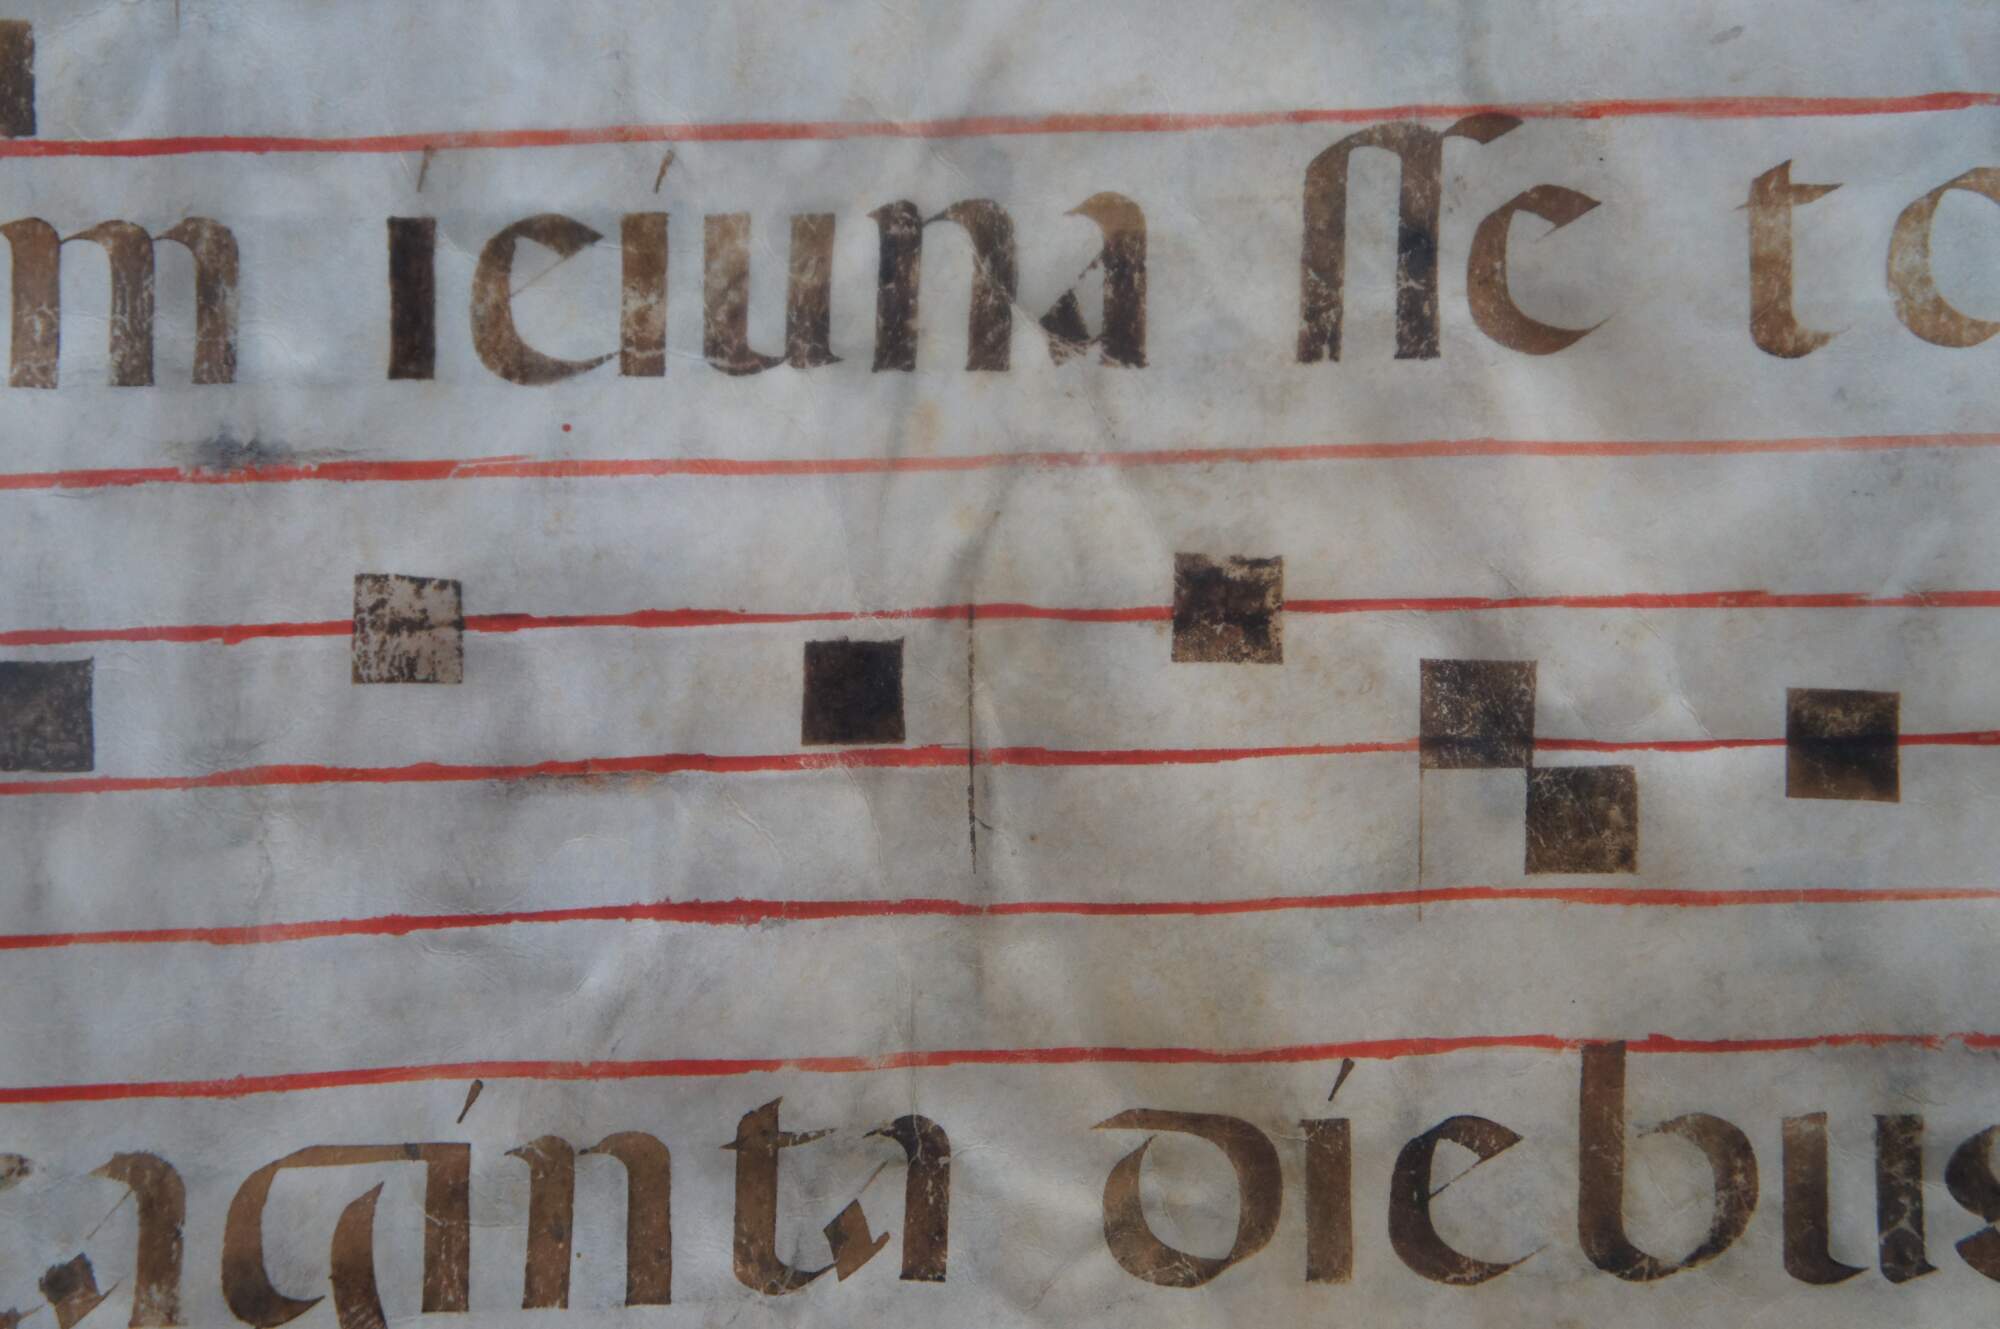 m ieiuna sse to
aginta diebus